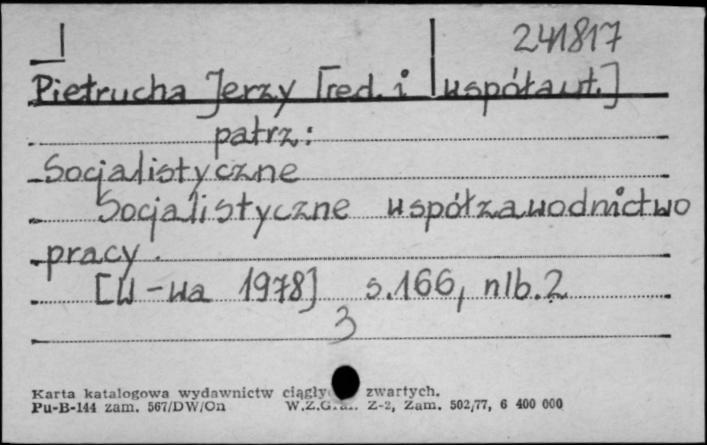 241817
Pietrucha Jerzy [red. i współaut.]
patrz:
Socjalistyczne
Socjalistyczne współzawodnictwo
pracy.
[W-wa 1978] s.166, nlb.2
3
Karta katalogowa wydawnictw zwartych.
Pu-B-144 zam. 567/DW/On Z-2, Zam. 502/77, 6 400 000